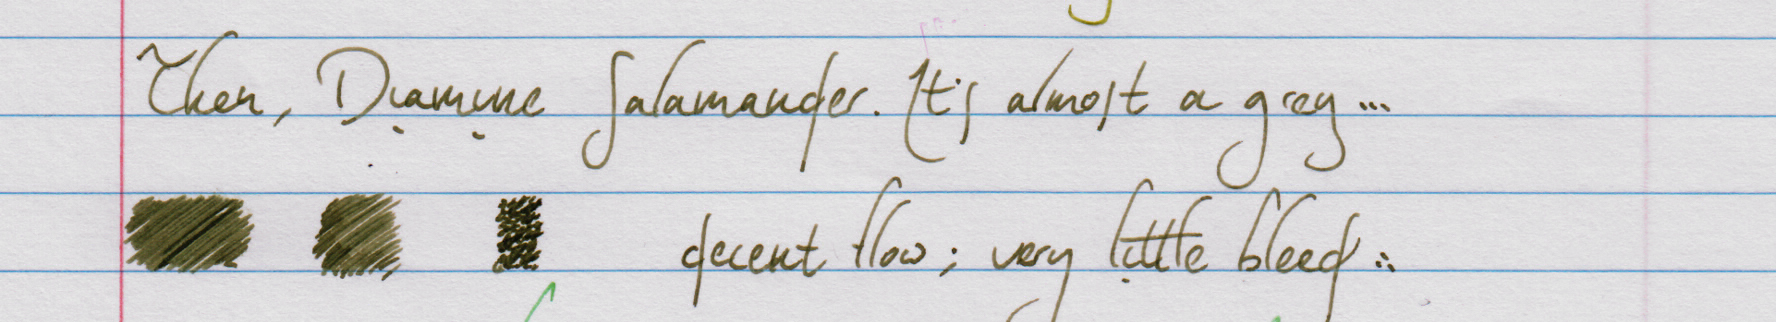 Then, Diamine Salamander. It's almost a grey...
decent flow; very little bleed :.